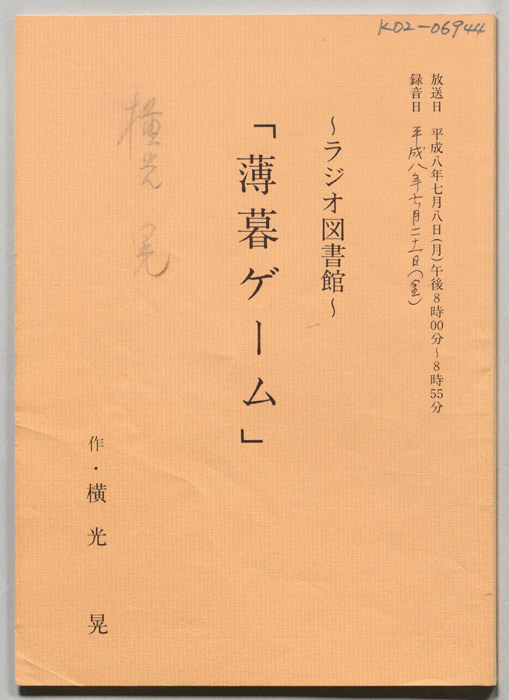 K02-06944
放送日 平成八年七月八日(月)午後8時00分~8時55分
録音日 平成八年六月二十一日(金)
~ラジオ図書館~
「薄暮ゲーム」
横光 晃
作・横光 晃